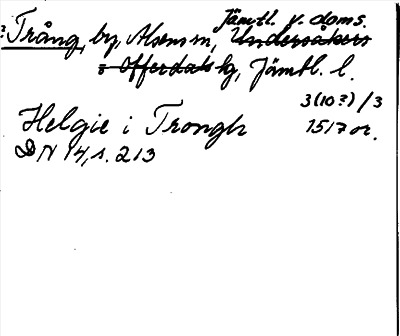 Jämtl. v. doms.
Trång, by, Alsens sn, Undersåkers
o Offerdals tg, Jämtl. l.
3(10?)/3
Helgie i Trongh 1517 or.
DN 14, s. 213